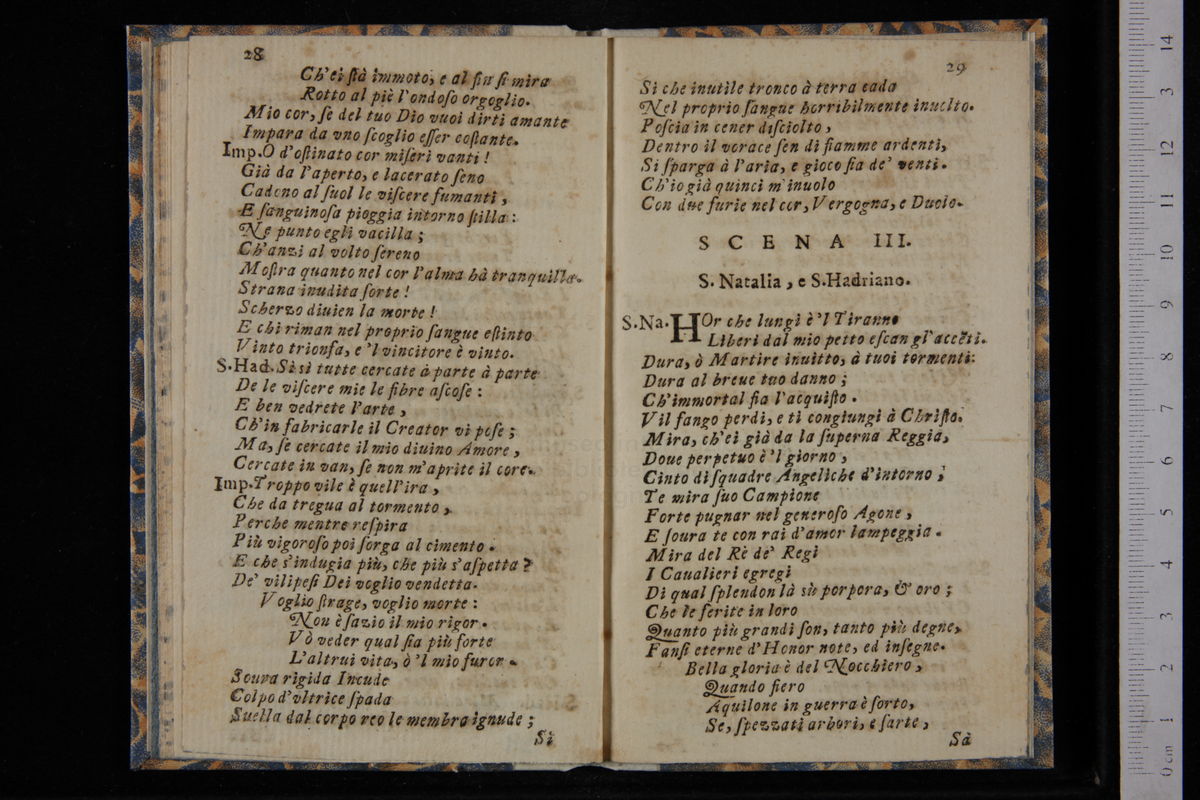 28
Ch'ei ſtà immoto, e al fin ſi mira
Rotto al piè l'ondoſo orgoglio.
Mio cor, ſe del tuo Dio vuoi dirti amante
Impara da vno ſcoglio eſſer coſtante.
Imp. O d'oſtinato cor miſeri vanti !
Già da l'aperto, e lacerato ſeno
Cadono al ſuol le viſcere fumanti ,
E ſanguinoſa pioggia intorno ſtilla :
Ne punto egli vacilla ;
Ch'anzi al volto ſereno
Moſtra quanto nel cor l'alma hà tranquilla.
Strana inudita ſorte !
Scherzo diuien la morte !
E chi riman nel proprio ſangue eſtinto
Vinto trionfa, e 'l vincitore è vinto.
S.Had. Sì sì tutte cercate à parte à parte
De le viſcere mie le fibre aſcoſe :
E ben vedrete l'arte ,
Ch'in fabricarle il Creator vi poſe ;
Ma, ſe cercate il mio diuino Amore ,
Cercate in van, ſe non m'aprite il core.
Imp. Troppo vile è quell'ira ,
Che da tregua al tormento ,
Perche mentre reſpira
Più vigoroſo poi ſorga al cimento .
E che s'indugia più, che più s'aſpetta ?
De' vilipeſi Dei voglio vendetta.
Voglio ſtrage, voglio morte :
Non è ſazio il mio rigor .
Vò veder qual ſia più forte
L'altrui vita, ò 'l mio furor .
Soura rigida Incude
Colpo d'vltrice ſpada
Suella dal corpo reo le membra ignude ;
Sì
29
Sì che inutile tronco à terra cada
Nel proprio ſangue horribilmente inuolto.
Poſcia in cener diſciolto ,
Dentro il vorace ſen di fiamme ardenti,
Si ſparga à l'aria, e gioco ſia de' venti.
Ch'io già quinci m'inuolo
Con due furie nel cor, Vergogna, e Duolo.
SCENA III.
S. Natalia , e S. Hadriano.
S.Na. HOr che lungi è 'l Tiranno
Liberi dal mio petto eſcan gl'accẽti.
Dura, ò Martire inuitto, à tuoi tormenti:
Dura al breue tuo danno ;
Ch'immortal fia l'acquiſto .
Vil fango perdi, e ti congiungi à Chriſto.
Mira, ch'ei già da la ſuperna Reggia,
Doue perpetuo è 'l giorno ,
Cinto di ſquadre Angeliche d'intorno ;
Te mira ſuo Campione
Forte pugnar nel generoſo Agone ,
E ſoura te con rai d'amor lampeggia .
Mira del Rè de' Regi
I Caualieri egregi
Di qual ſplendon là sù porpora, & oro ;
Che le ferite in loro
Quanto più grandi ſon, tanto più degne,
Fanſi eterne d'Honor note, ed inſegne.
Bella gloria è del Nocchiero ,
Quando fiero
Aquilone in guerra è ſorto,
Se, ſpezzati arbori, e ſarte ,
Sà